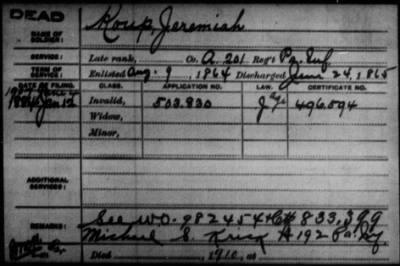 DEAD
NAME OF SOLDIER: Koup, Jeremiah
SERVICE: Late rank, Co. A. 201 Reg't Pa. Inf
TERM OF SERVICE: Enlisted Aug. 9, 1864 Discharged June 24, 1865
DATE OF FILING. CLASS. APPLICATION NO. LAW. CERTIFICATE NO.
1884 Jan 12 Invalid, 503.830 496.094
Widow,
Minor,
ADDITIONAL SERVICES:
REMARKS: See W.O. 982454 833,399
Michael S. Krick A 192
Died 1910, at